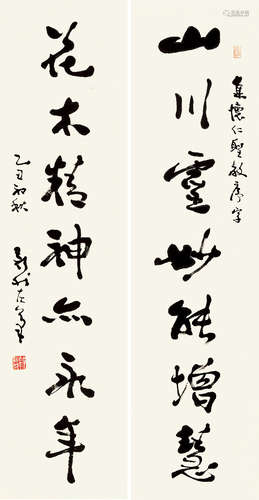 山川靈妙能增慧
集懷仁聖教序字
花木精神亦永年
乙丑初秋